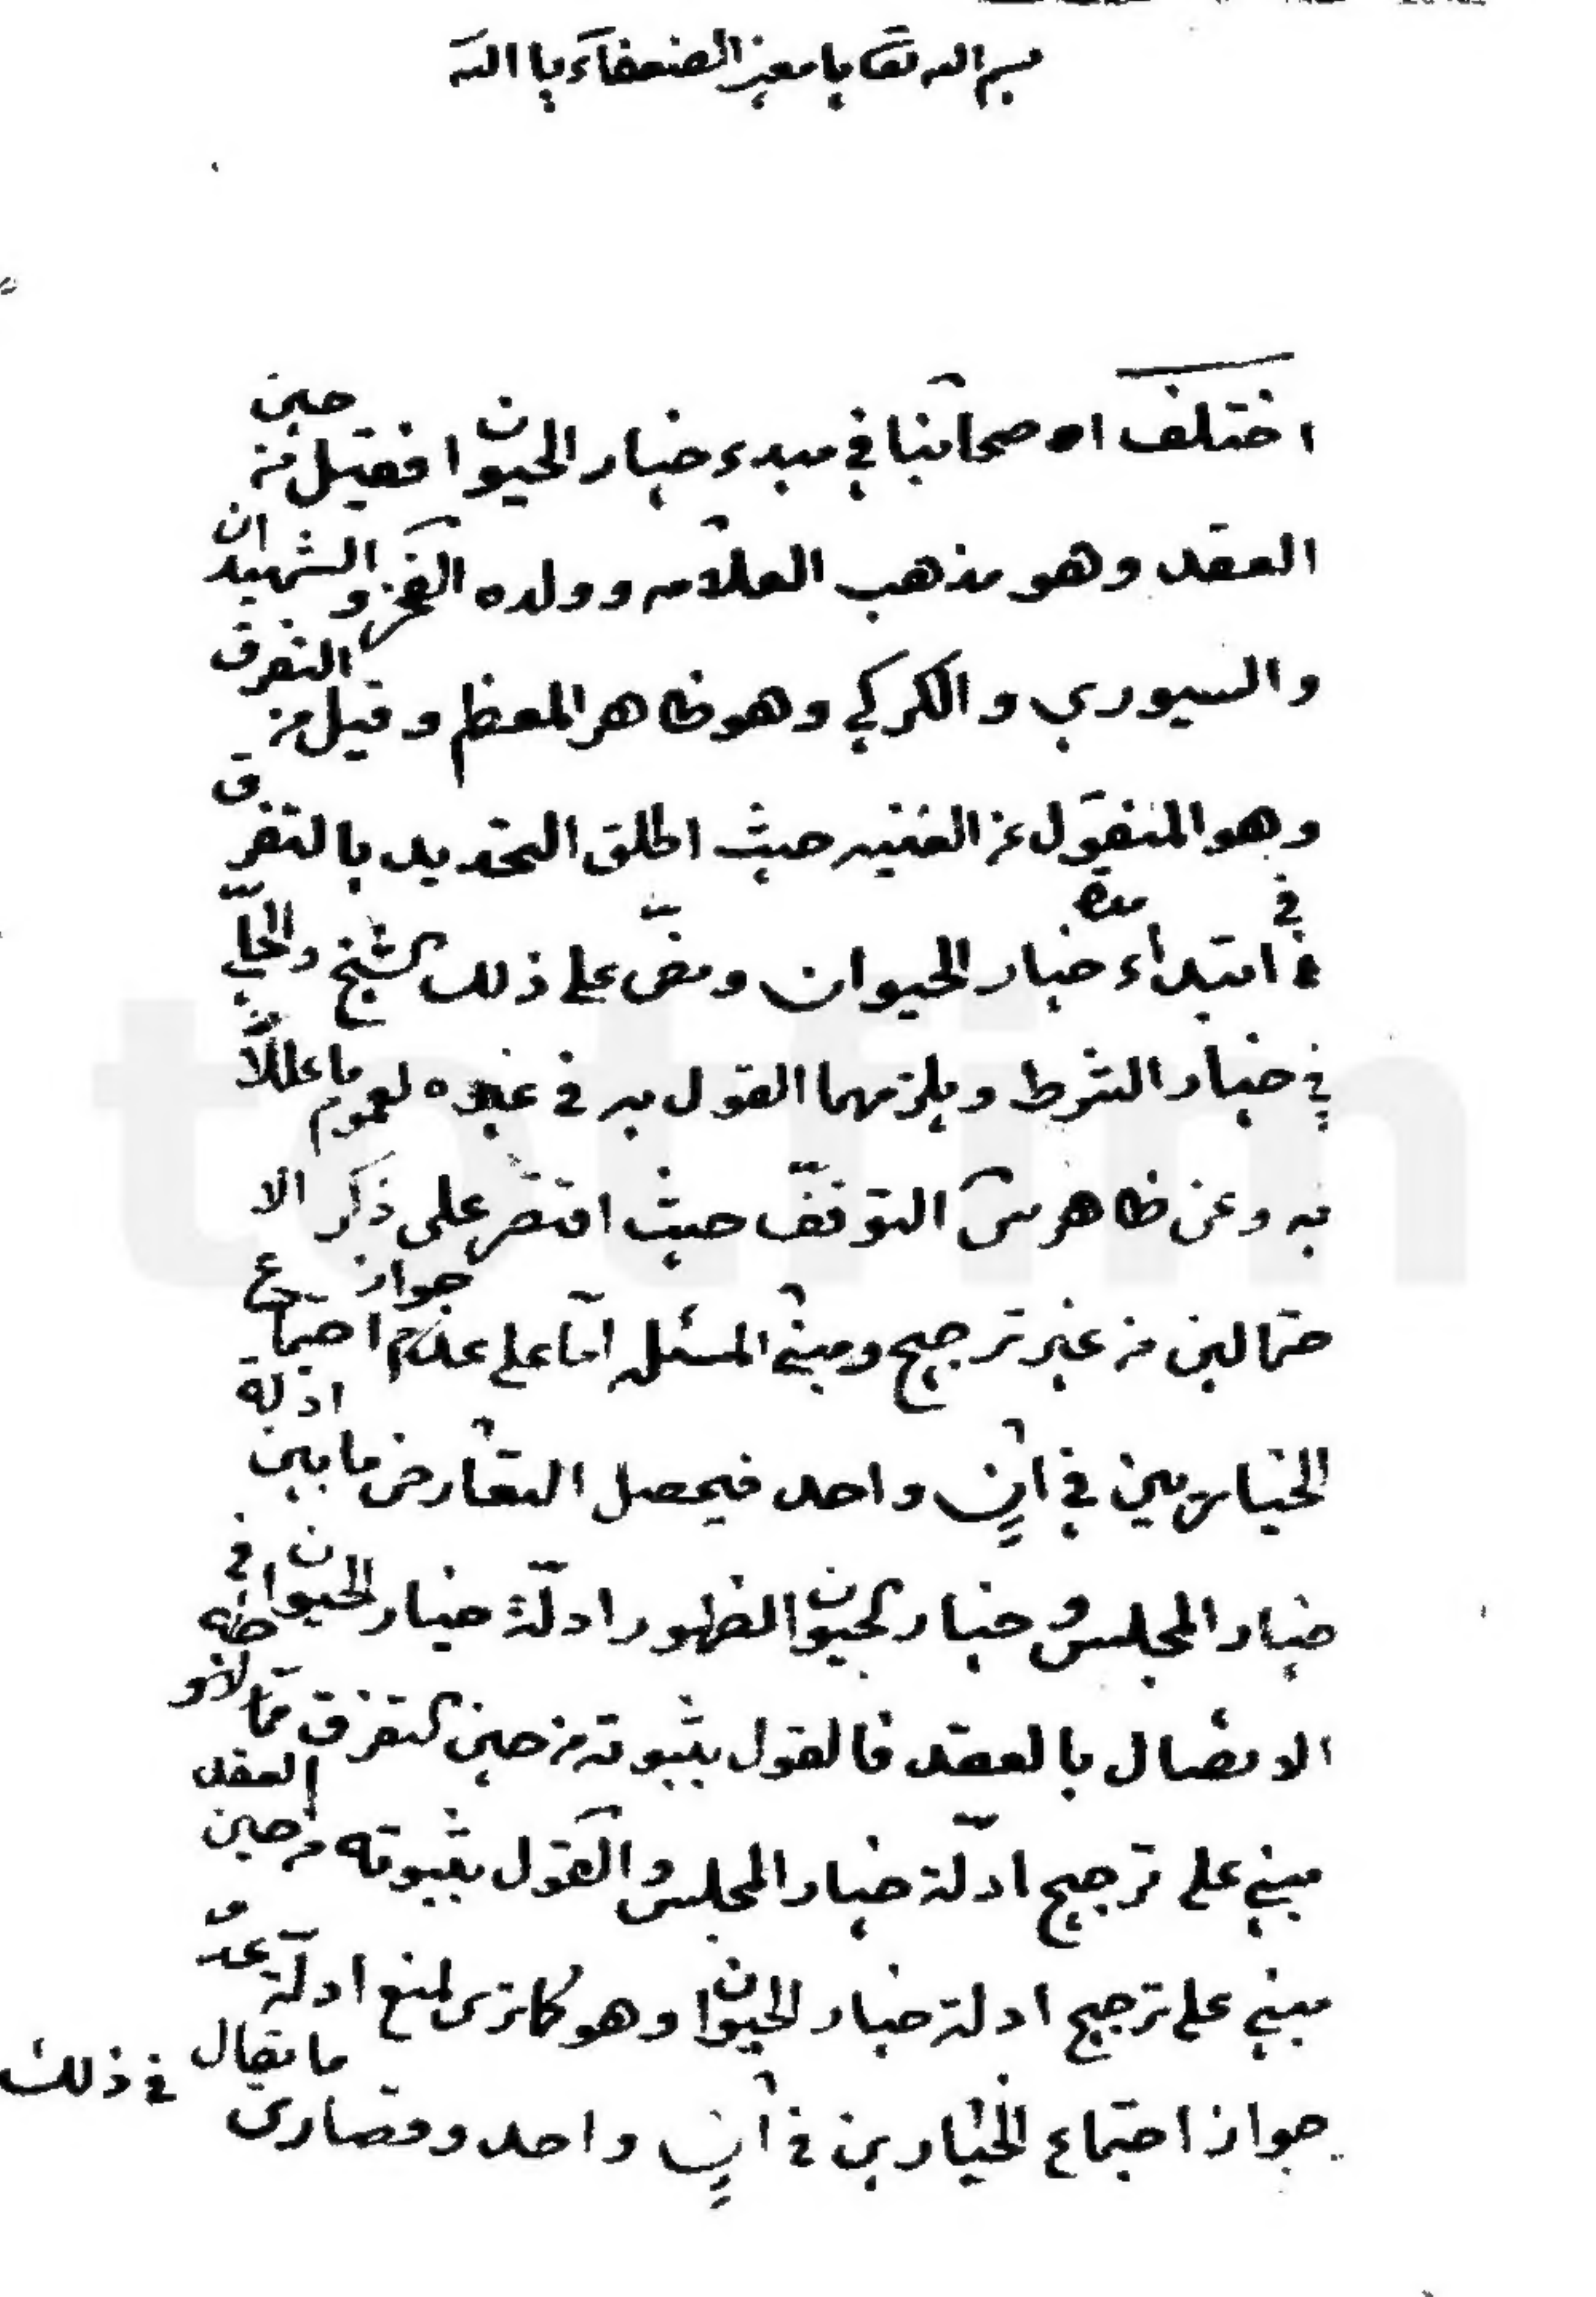 بسم الله تعا يا معين الضعفاء يا الله
اختلف اصحابنا في مبدء خيار الحيوان فقيل من حين
العقد وهو مذهب العلامه وولده الفخر والشهيدان
والسيوري والكركي وهو ظاهر المعظم وقيل من التفرق
وهو المنقول عن الغنيه حيث اطلق التحديد بالتفرق
في ابتداء مدة خيار الحيوان ونصّ على ذلك الشيخ والحلّي
في خيار الشرط ويلزمهما القول به في غيره لعموم ما عللّا
به وعن ظاهر س التوقّف حيث اقتصر على ذكر الا
حتمالين من غير ترجيح ومبنى المسئله امّا على عدم جواز اجتماع
الخيارين في آنٍ واحد فيحصل التعارض ما بين ادلة
خيار المجلس و خيار الحيوان لظهور ادلّة خيار الحيوان في
الاتصال بالعقد فالقول بثبوته من حين التفرق
مبني على ترجيح ادلّة خيار المجلس والقول بثبوته من حين العقد
مبني على ترجيح ادلة خيار الحيوان وهو كما ترى لمنع ادلّة عدم
جواز اجتماع الخيارين في آنٍ واحد وقصارى ما يقال في ذلك